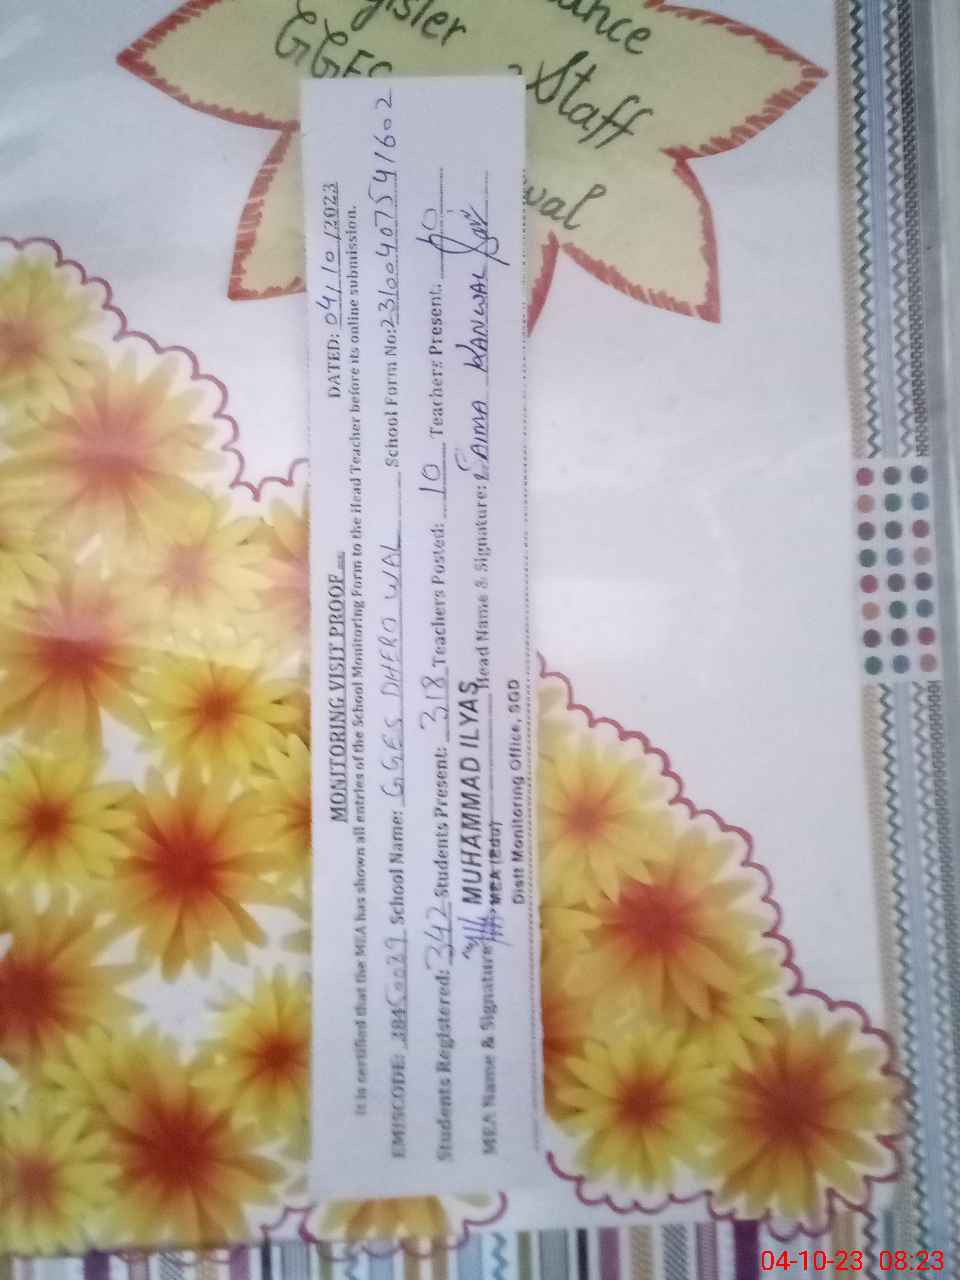 gister
GGES
ance
Staff
wal
MONITORING VISIT PROOF
DATED: 04/10/2023
It is certified that the MEA has shown all entries of the School Monitoring Form to the Head Teacher before its online submission.
EMISCODE: 38450029 School Name: GGES DHERO WAL School Form No: 231004075941602
Students Registered: 342 Students Present: 318 Teachers Posted: 10 Teachers Present:
MEA Name & Signature: MUHAMMAD ILYAS Head Name & Signature: KANWAL
MEA (Edu)
Distt Monitoring Office, SGD
04-10-23 08:23